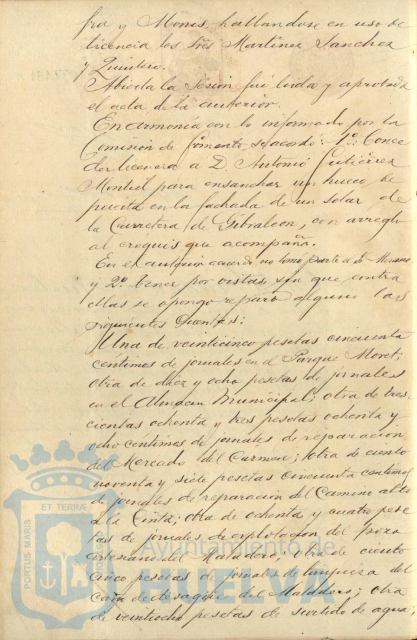 fra y Mones, hallandose en uso de
licencia los Sres Martinez Sanchez
y Quintero.
Abierta la Sesión fué leida y aprobada
el acta de la anterior.
En armonía con lo informado por la
Comisión de Fomento se acordó: 1º Conce
der licencia a D. Antonio Gutiérrez
Montiel para ensanchar un hueco de
puerta en la fachada de un solar de
la Carretera de Gibraleon, con arreglo
al croquis que acompaña.
En el anterior acuerdo no tomo parte el Sr
y 2º tener por vistas sin que contra
ellas se oponga reparo alguno las
siguientes Cuentas:
Una de veinticinco pesetas cincuenta
centimos de jornales en el Parque Moret;
otra de diez y ocho pesetas de jornales
en el Almacen Municipal; otra de tres
cientas ochenta y tres pesetas ochenta y
ocho centimos de jornales de reparacion
del Mercado del Carmen; otra de ciento
noventa y siete pesetas cincuenta centimos
de jornales de reparacion del Camino alto
a la Cinta; otra de ochenta y cuatro pese
tas de jornales de explotacion del pozo
artesiano del Matadero; otra de ciento
cinco pesetas de jornales de limpieza del
caño de desagüe del Matadero; otra
de veintiocho pesetas de surtido de agua;
PORTUS MARIS ET TERRÆ
Ayuntamiento de
HUELVA